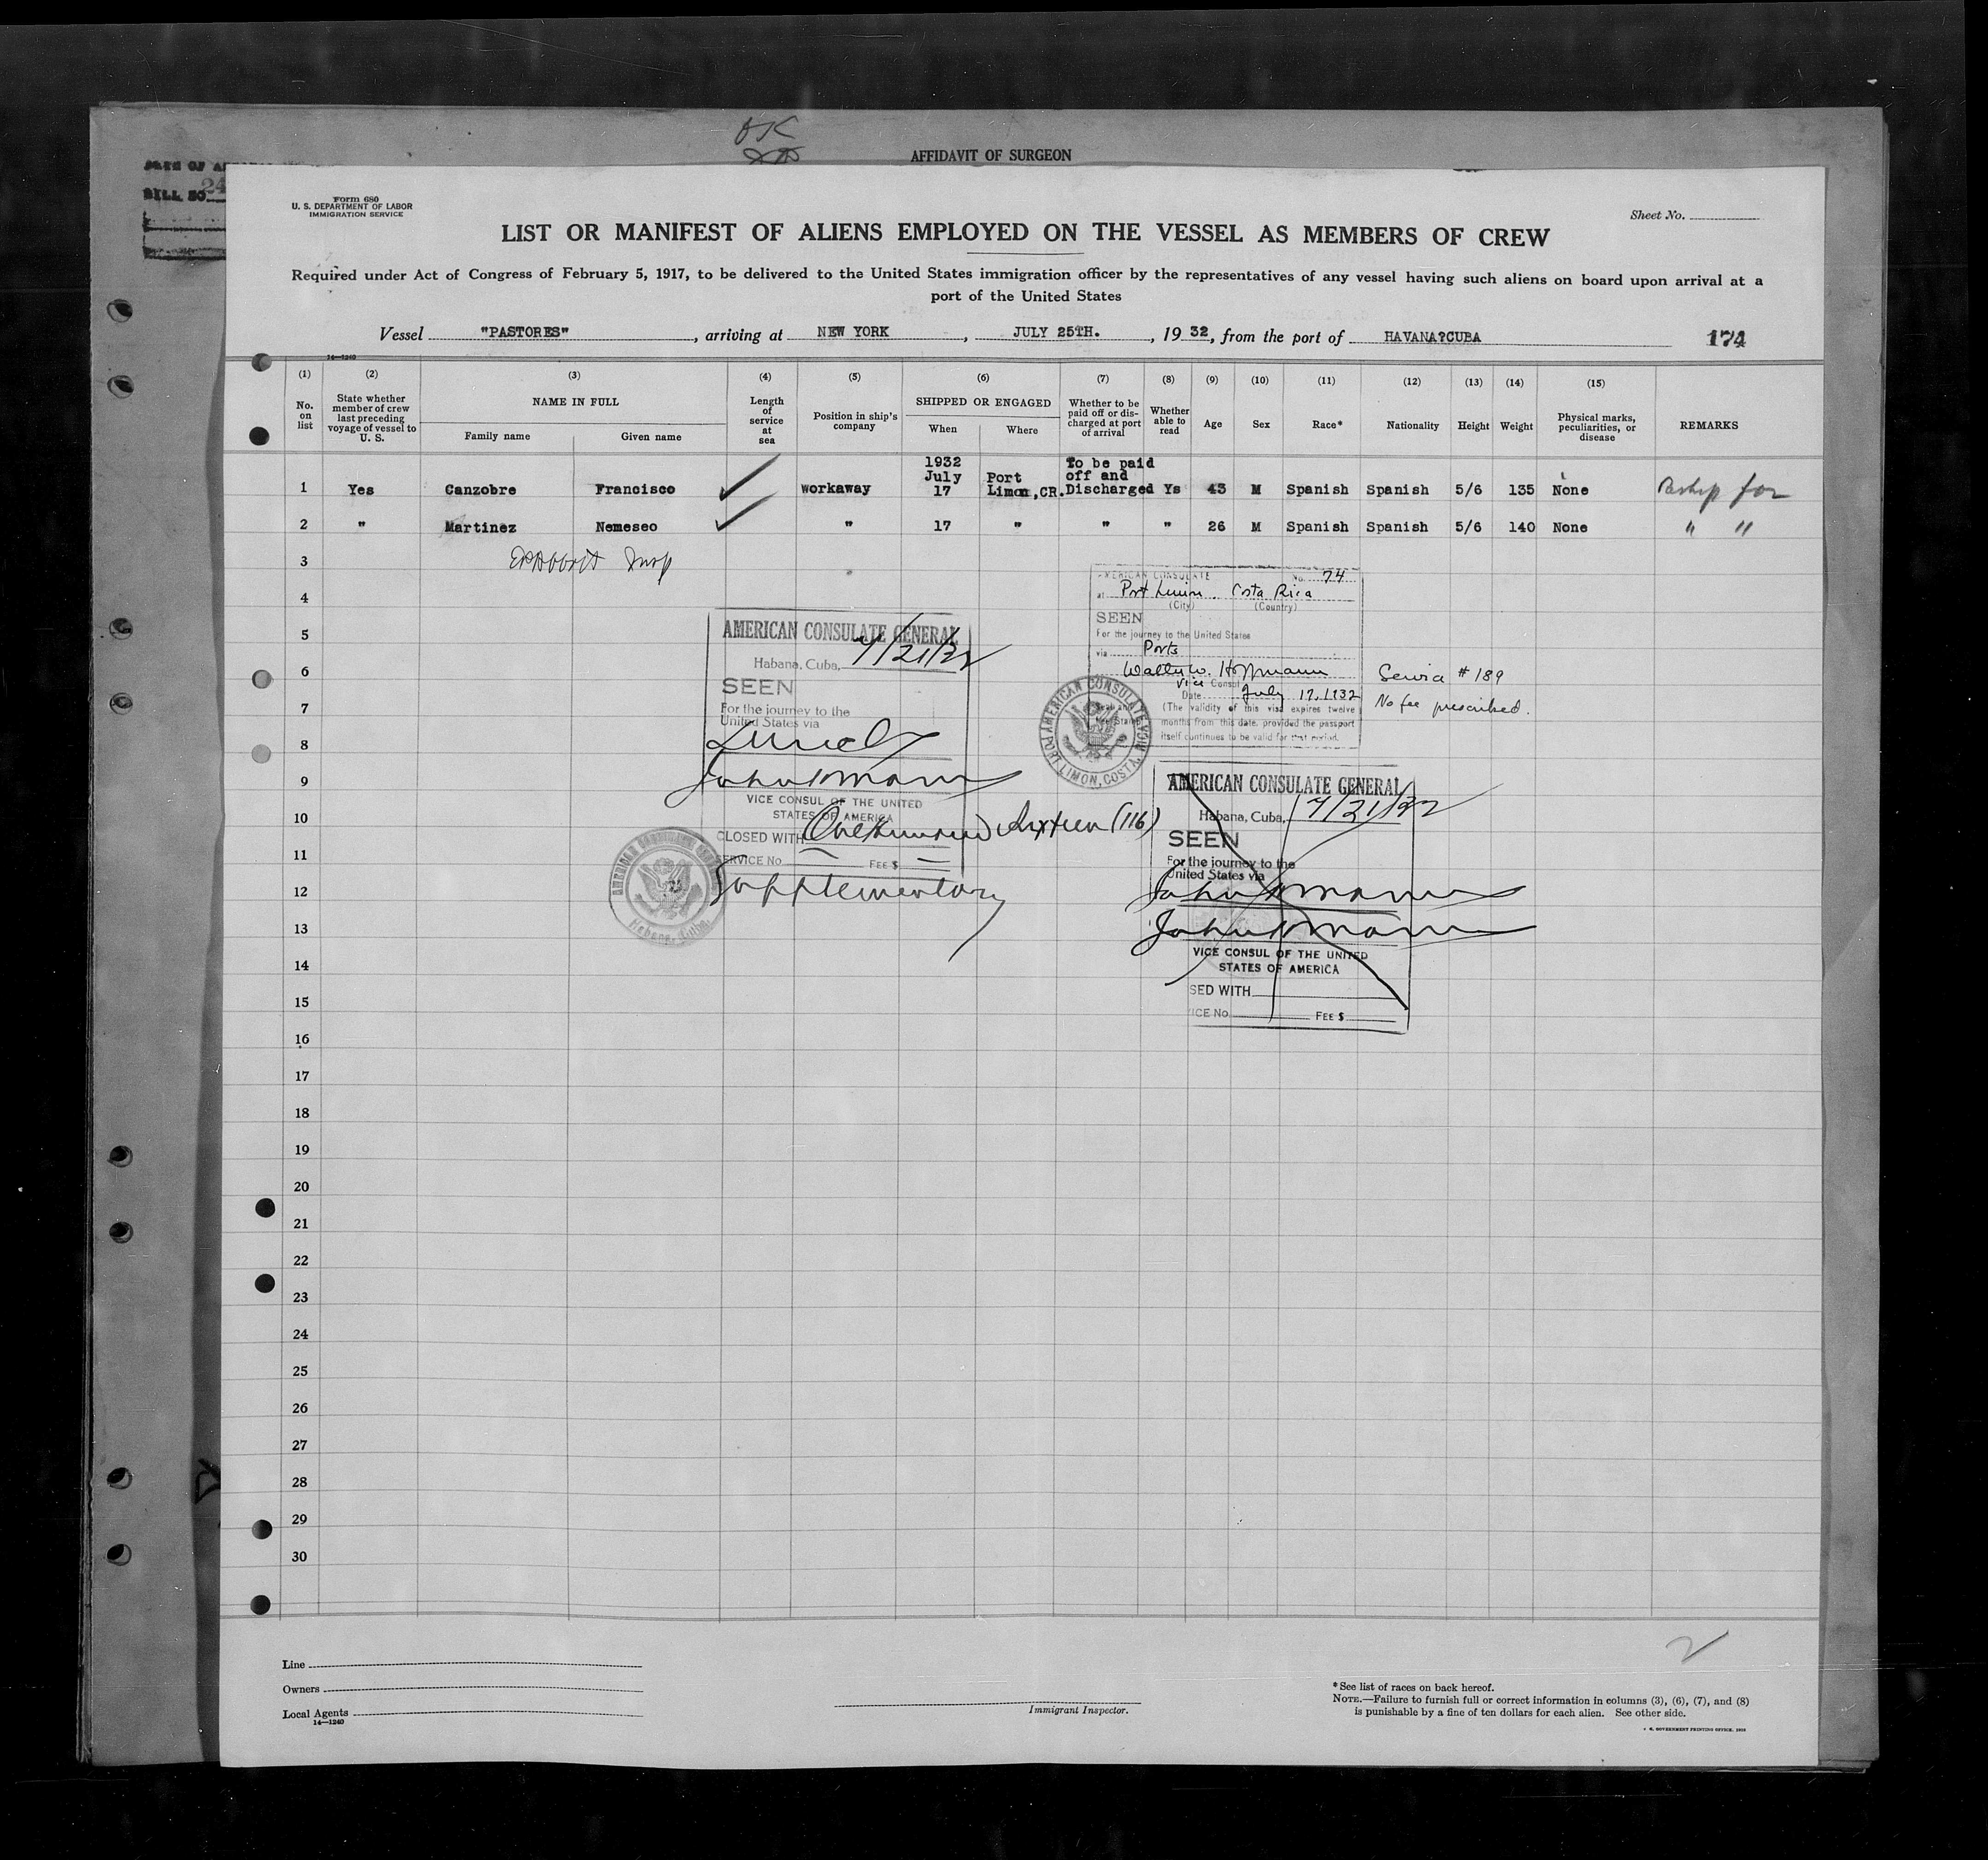 OK
AFFIDAVIT OF SURGEON
BILL NO. 24
Form 680
U. S. DEPARTMENT OF LABOR
IMMIGRATION SERVICE
Sheet No.
LIST OR MANIFEST OF ALIENS EMPLOYED ON THE VESSEL AS MEMBERS OF CREW
Required under Act of Congress of February 5, 1917, to be delivered to the United States immigration officer by the representatives of any vessel having such aliens on board upon arrival at a
port of the United States
Vessel "PASTORES", arriving at NEW YORK, JULY 25TH., 1932, from the port of HAVANA?CUBA 174
14—1240
(1) (2) (3) (4) (5) (6) (7) (8) (9) (10) (11) (12) (13) (14) (15)
No. on list
State whether member of crew last preceding voyage of vessel to U. S.
NAME IN FULL
Family name Given name
Length of service at sea
Position in ship's company
SHIPPED OR ENGAGED
When Where
Whether to be paid off or discharged at port of arrival
Whether able to read
Age Sex Race* Nationality Height Weight
Physical marks, peculiarities, or disease
REMARKS
1 Yes Canzobre Francisco workaway 1932 July 17 Port Limon,CR. To be paid off and Discharged Ys 43 M Spanish Spanish 5/6 135 None Reship for
2 " Martinez Nemeseo " 17 " " " 26 M Spanish Spanish 5/6 140 None " "
3
4
5
6
7
8
9
10
11
12
13
14
15
16
17
18
19
20
21
22
23
24
25
26
27
28
29
30
Insp
AMERICAN CONSULATE No. 74
at Port Limon, Costa Rica
(City) (Country)
SEEN
For the journey to the United States
via Ports
Walter W. Hoffmann
Vice Consul
Date July 17, 1932
(The validity of this visa expires twelve
months from this date, provided the passport
itself continues to be valid for that period.
Service # 189
No fee prescribed.
AMERICAN CONSULATE
PORT LIMON, COSTA RICA
AMERICAN CONSULATE GENERAL
Habana, Cuba, 7/21/32
SEEN
For the journey to the
United States via
VICE CONSUL OF THE UNITED
STATES OF AMERICA
CLOSED WITH One hundred sixteen (116)
SERVICE No. FEE $
Supplementary
Habana, Cuba.
AMERICAN CONSULATE GENERAL
Habana, Cuba, 7/21/32
SEEN
For the journey to the
United States via
VICE CONSUL OF THE UNITED
STATES OF AMERICA
SED WITH
ICE No. FEE $
2
Line
Owners
Local Agents
14—1240
Immigrant Inspector.
* See list of races on back hereof.
NOTE.—Failure to furnish full or correct information in columns (3), (6), (7), and (8)
is punishable by a fine of ten dollars for each alien. See other side.